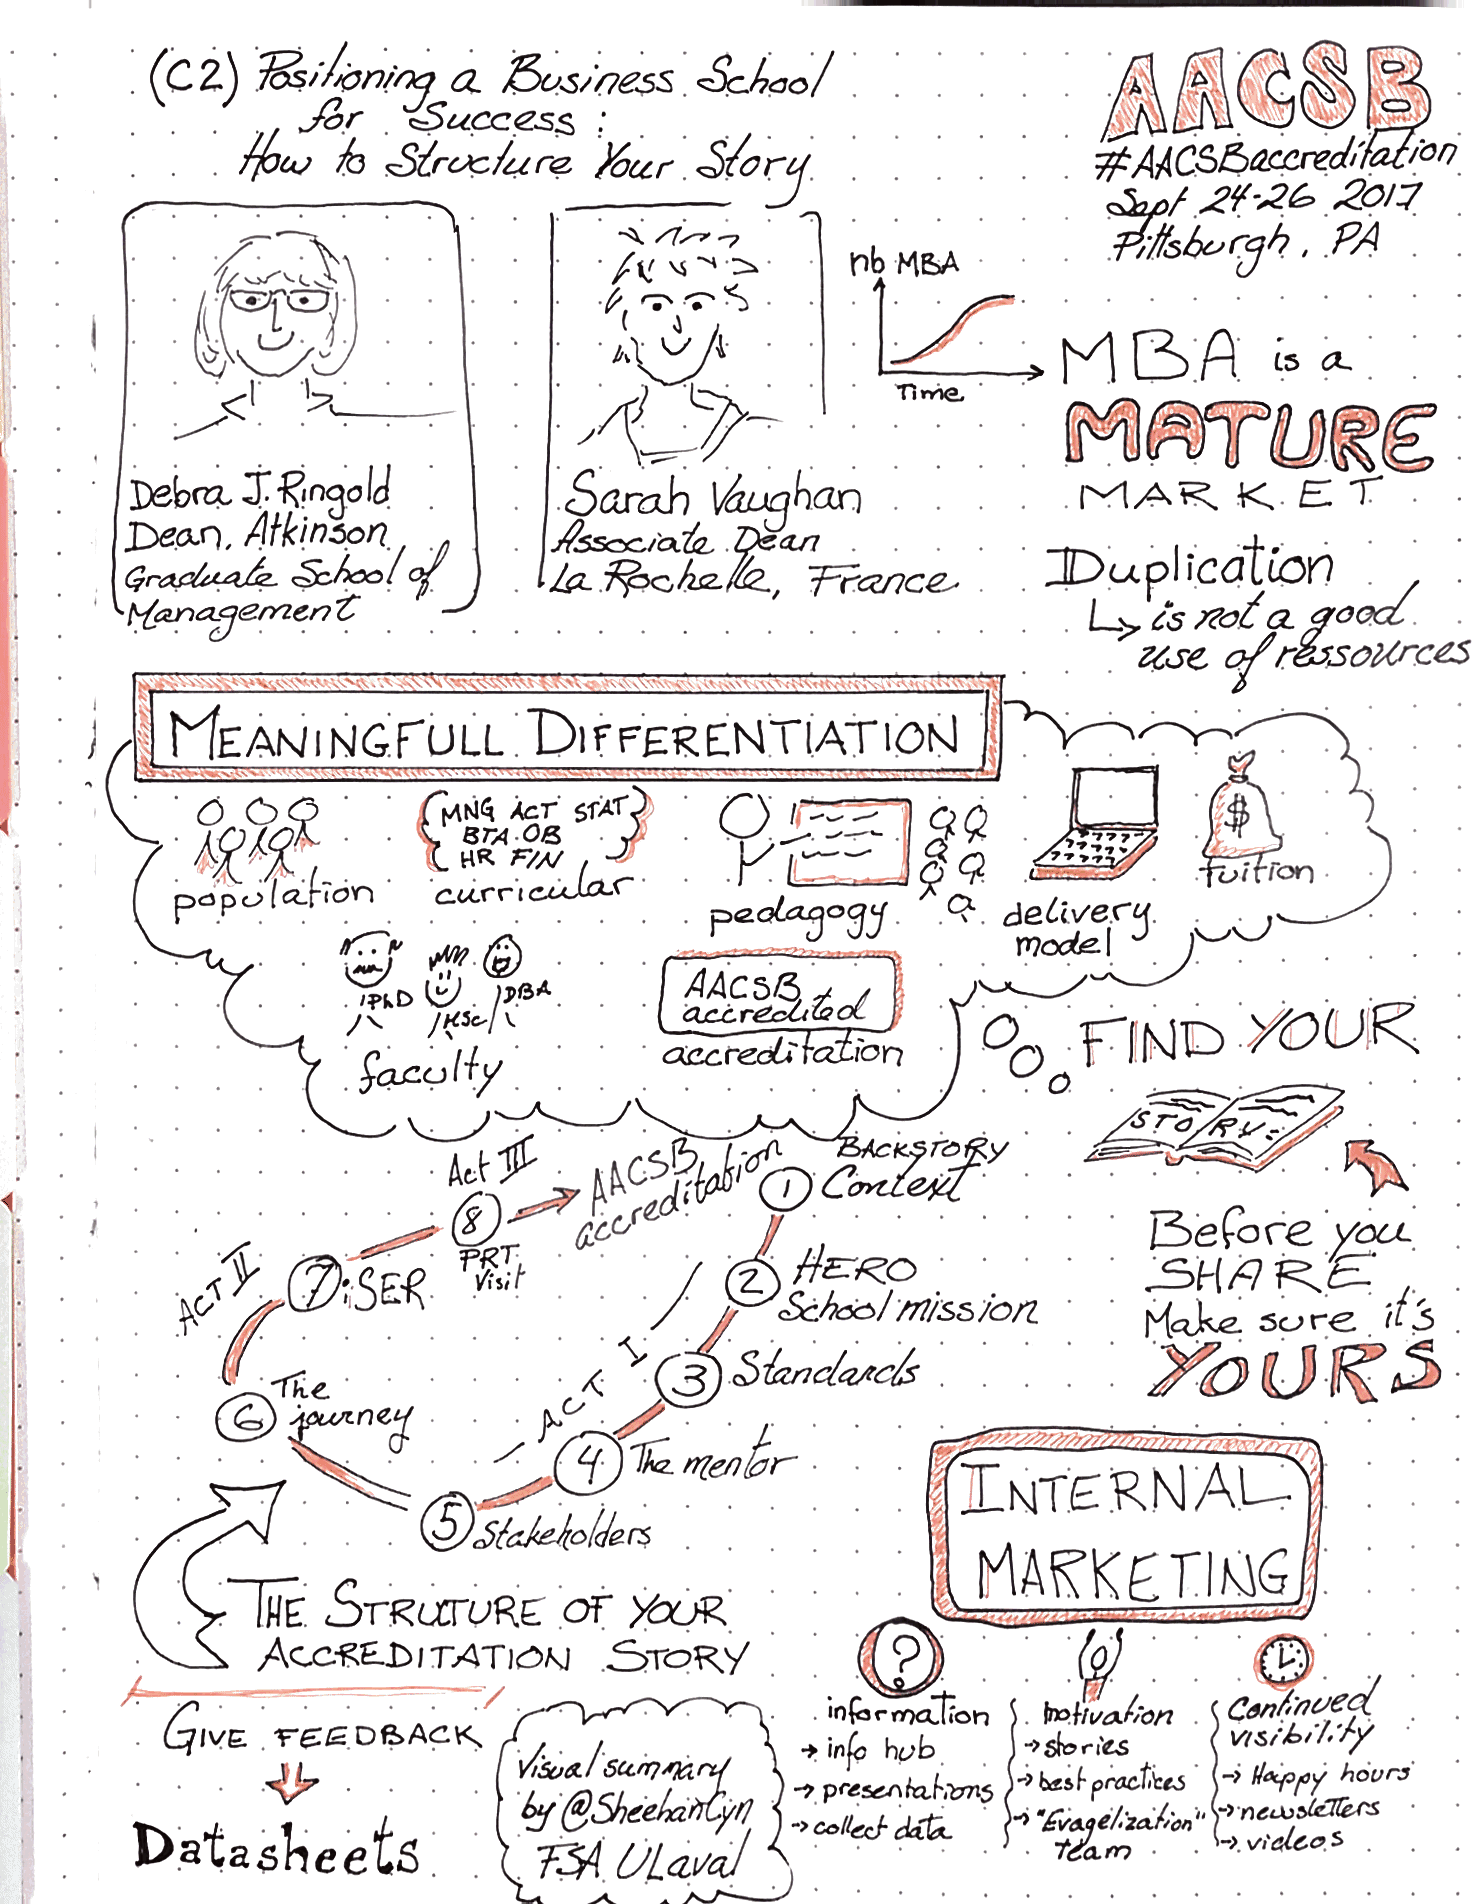 (C2) Positioning a Business School
for Success:
How to Structure Your Story
AACSB
#AACSBaccreditation
Sept 24-26 2017
Pittsburgh, PA
Debra J. Ringold
Dean, Atkinson
Graduate School of
Management
Sarah Vaughan
Associate Dean
La Rochelle, France
nb MBA
Time
MBA is a
MATURE
MARKET
Duplication
is not a good
use of ressources
MEANINGFULL DIFFERENTIATION
population
MNG ACT STAT
BTA OB
HR FIN
curricular
pedagogy
delivery
model
$
tuition
PhD
MSc
DBA
faculty
AACSB
accredited
accreditation
FIND YOUR
STORY:
Before you
SHARE
Make sure it's
YOURS
1
BACKSTORY
Context
2
HERO
School mission
3 Standards
4 The mentor
5 Stakeholders
ACT I
6 The
journey
ACT II
7: SER
Act III
8
PRT
Visit
AACSB
accreditation
THE STRUCTURE OF YOUR
ACCREDITATION STORY
GIVE FEEDBACK
Datasheets
Visual summary
by @SheehanCyn
FSA ULaval
INTERNAL
MARKETING
?
information
→ info hub
→ presentations
→ collect data
motivation
→ stories
→ best practices
→ "Evagelization"
team
Continued
visibility
→ Happy hours
→ newsletters
→ videos